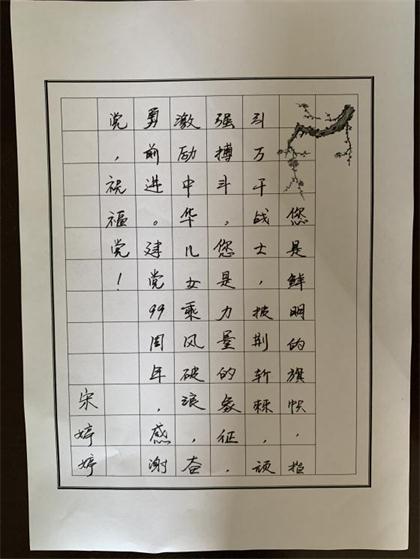 您是鲜明的旗帜，指
引万千战士，披荆斩棘，顽
强搏斗，您是力量的象征，
激励中华儿女乘风破浪，奋
勇前进。建党99周年，感谢
党，祝福党！
宋婷婷